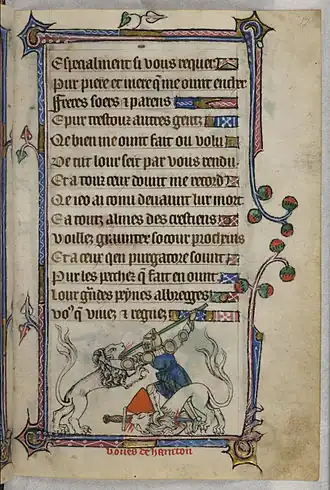 Especialment si vous requer
Pur piere et miere q me ount encher
Freres soers & parens
E pur trestour autres gentz
Qe bien me ount fait ou volu
De tut lour seit par vous rendu
Et a tour ceux dount me record
Qe ieo ai conu devaunt lur mort
Et a toutz almes des crestiens
Voillez graunter socour prochens
Et a ceux qen purgatore sount
Pur les pechez q fait en ount
lour gndes peynes albregges
vo9 q vivez & regnez
boves de hamtou